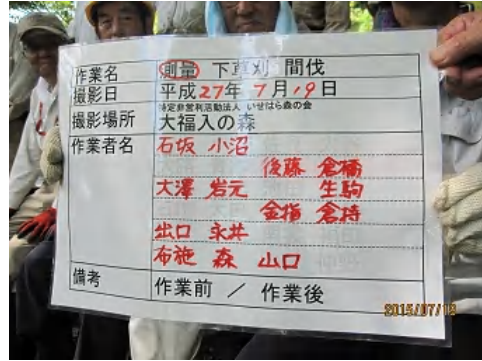 作業名 測量 下草刈 間伐
撮影日 平成27年7月19日
特定非営利活動法人 いせはら森の会
撮影場所 大福入の森
作業者名 石坂 小沼
後藤 倉橋
大澤 岩元 生駒
金指 倉持
出口 永井
布施 森 山口
備考 作業前 / 作業後
2015/07/19